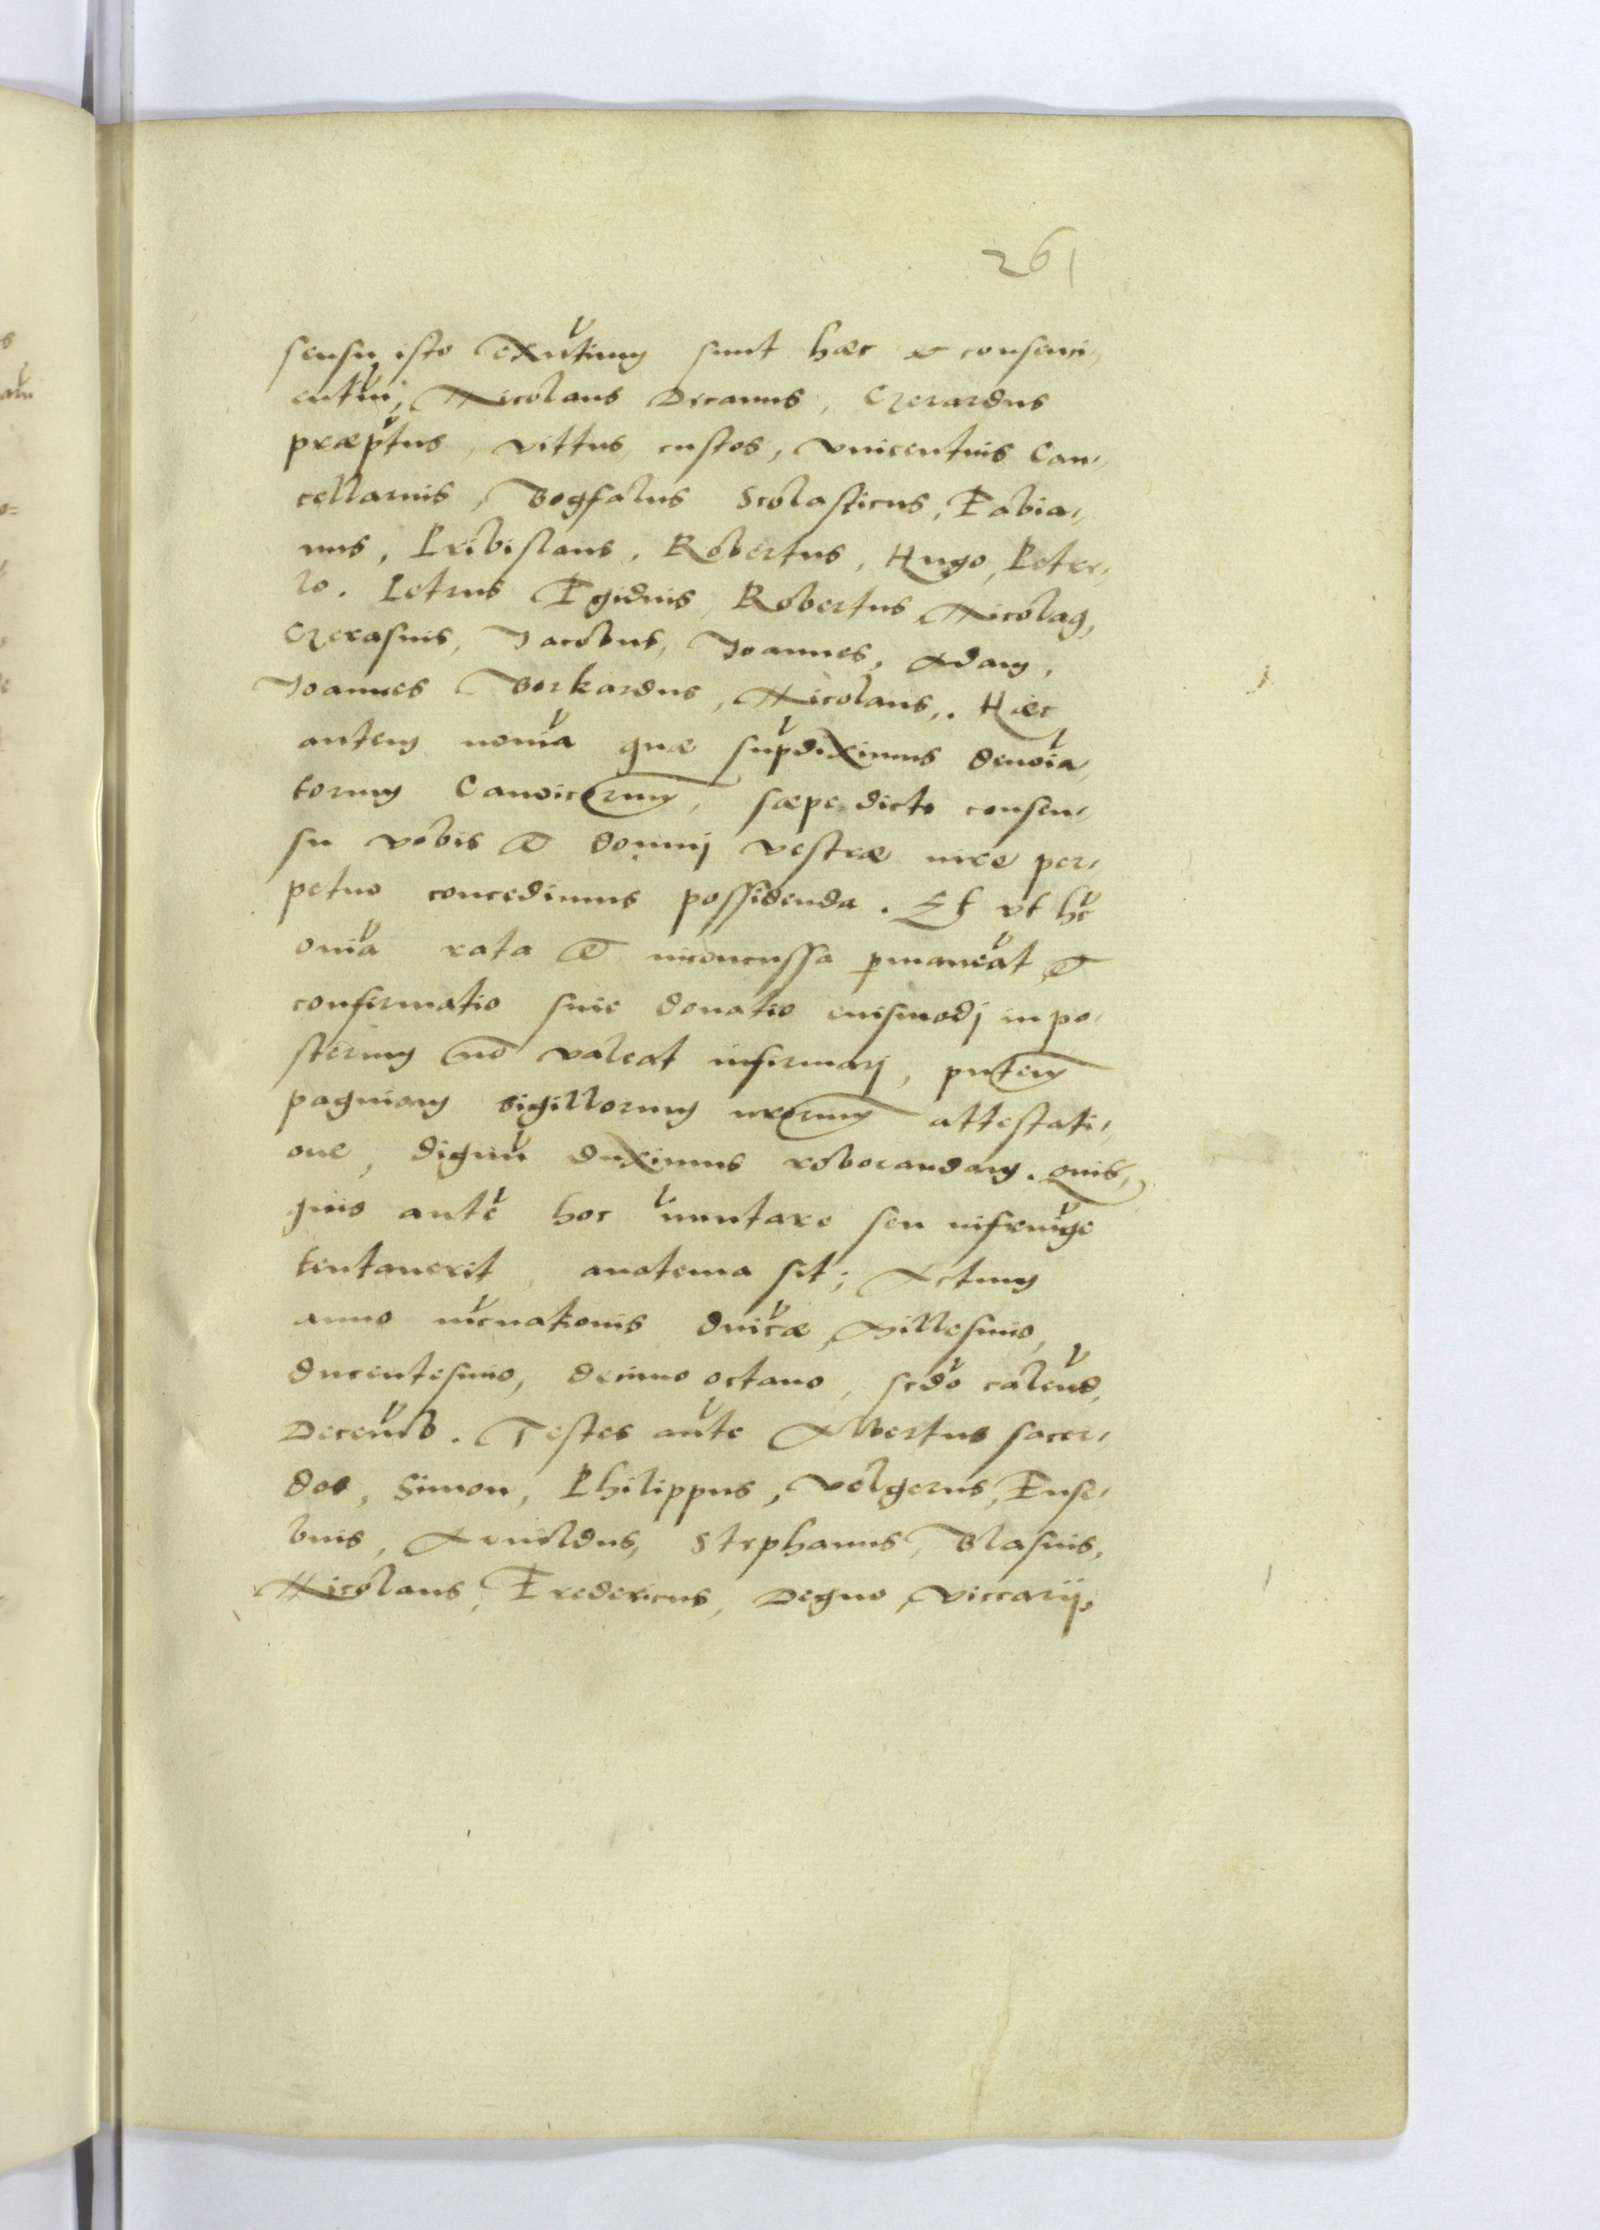 261
sensu isto exutium sunt haec & consenci-
entiu, Nicolaus Decanus, Gerardus
praeptus, vittus custos, vincentius Can-
cellarius, Bogfalus Scolasticus, Fabia-
nus, Pribislaus, Robertus, Hugo, Peter-
ro. Petrus Egidius, Robertus Nicolaus,
Gerasius, Jacobus, Joannes, Adam,
Joannes Borkardus, Nicolaus,. Haec
autem nomia quae supdiximus denoia
torum Canoicorum, saepe dicto consen-
su vobis & domuj vestrae iure per-
petuo concedimus possidenda. Et vt hec
onia rata & inconcussa pmaneat &
confirmatio siue donatio euismodj in po-
sterum no valeat infirmarj, pntem
paginam sigillorum nrorum attestati-
one, dignu duximus roborandam. Quis-
quis ante hoc imutare seu infringe
tentauerit, anatema sit; Actum
anno incnationis dnicae, Millesimo,
ducentesimo, decimo octauo, secdo calend,
Decemb. Testes aute Albertus sacer-
dos, Simon, Philippus, Volgerus, Euse-
bius, Arnoldus, Stephanus, Blasius,
Nicolaus, Fredericus, Degno, viccarij,